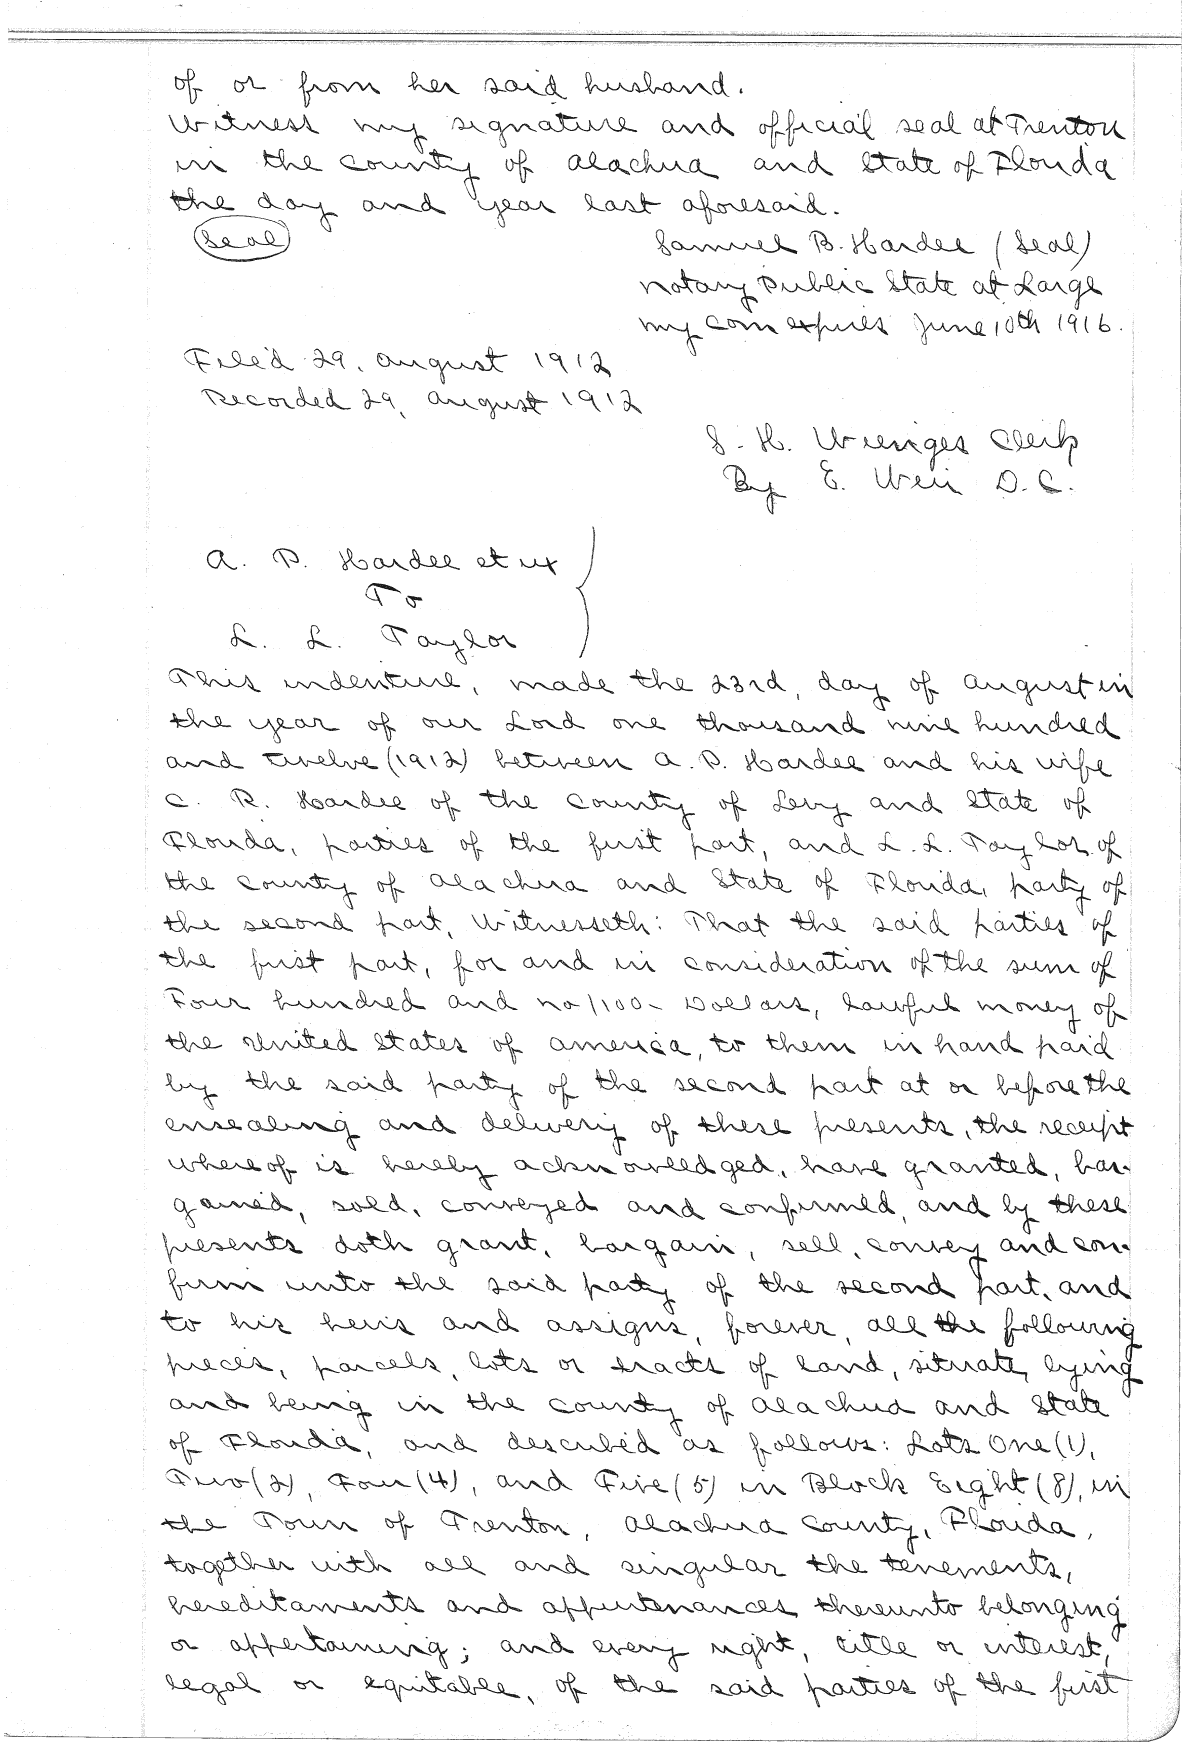 of or from her said husband.
Witness my signature and official seal at Trenton
in the County of Alachua and State of Florida
the day and year last aforesaid.
(Seal)
Samuel B. Hardee (Seal)
Notary Public State at Large
my com expires June 10th 1916.
Filed 29, August 1912
Recorded 29, August 1912
S. H. Wienges Clerk
By E. Weir D.C.
A. P. Hardee et ux
To
L. L. Taylor
This indenture, made the 23rd, day of August in
the year of our Lord one thousand nine hundred
and twelve (1912) between A. P. Hardee and his wife
C. R. Hardee of the County of Levy and State of
Florida, parties of the first part, and L. L. Taylor of
the County of Alachua and State of Florida, party of
the second part, Witnesseth: That the said parties of
the first part, for and in consideration of the sum of
Four hundred and no/100- Dollars, lawful money of
the United States of America, to them in hand paid
by the said party of the second part at or before the
ensealing and delivery of these presents, the receipt
whereof is hereby acknowledged, have granted, bar-
gained, sold, conveyed and confirmed, and by these
presents doth grant, bargain, sell, convey and con-
firm unto the said party of the second part, and
to his heirs and assigns, forever, all the following
pieces, parcels, lots or tracts of land, situate, lying
and being in the County of Alachua and State
of Florida, and described as follows: Lots One (1),
Two (2), Four (4), and Five (5) in Block Eight (8), in
the Town of Trenton, Alachua County, Florida,
together with all and singular the tenements,
hereditaments and appurtenances thereunto belonging
or appertaining; and every right, title or interest,
legal or equitable, of the said parties of the first